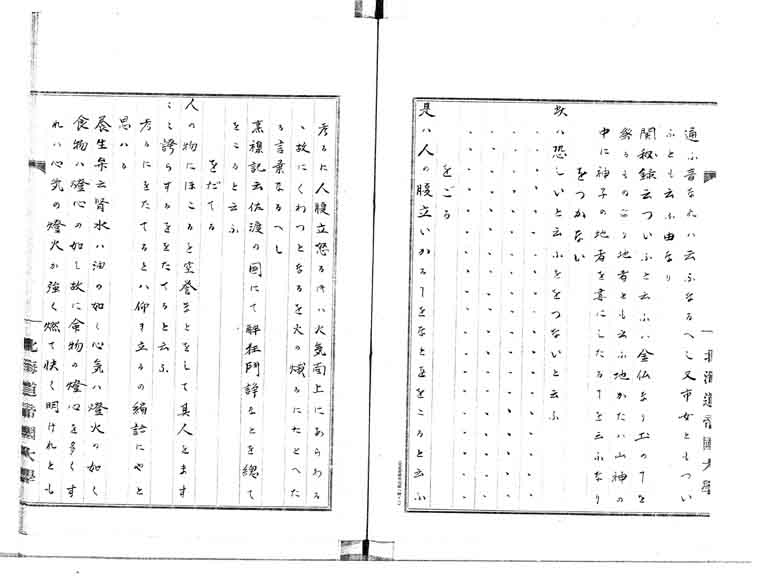 通ふ音なれハ云ふなるへし又市女ともつい
ふとも云ふ由なり
関秘録云ついふと云ふハ金仏なり土の下を
祭るものにて地者とも云ふ地かたハ山神の
中に神子の地者を書にしたる下を云ふなり
をつかない
故ハ恐しいと云ふををつないと云ふ
をごる
是ハ人の腹立いかる下をなと直をころと云ふ
考るに人腹立怒る時ハ火気面上にあらわる
ゝ故にくわつとなるを火の熾るにたとへた
る言葉なるへし
裏襟記云佐渡の国にて酔狂鬥諍ことを総て
をころと云ふ
をだてる
人の物にほこるを空誉ことをして其人をます
こゝ誇らするををたてると云ふ
考るにをたてるとハ仰き立るの縮語にやと
思ハる
養生弁云腎水ハ油の如く心気ハ燈火の如く
食物ハ燈心の如し故に食物の燈心を多くす
れハ心気の燈火か強く燃て快く明けれとも
北海道帝國大學
北海道帝國大學